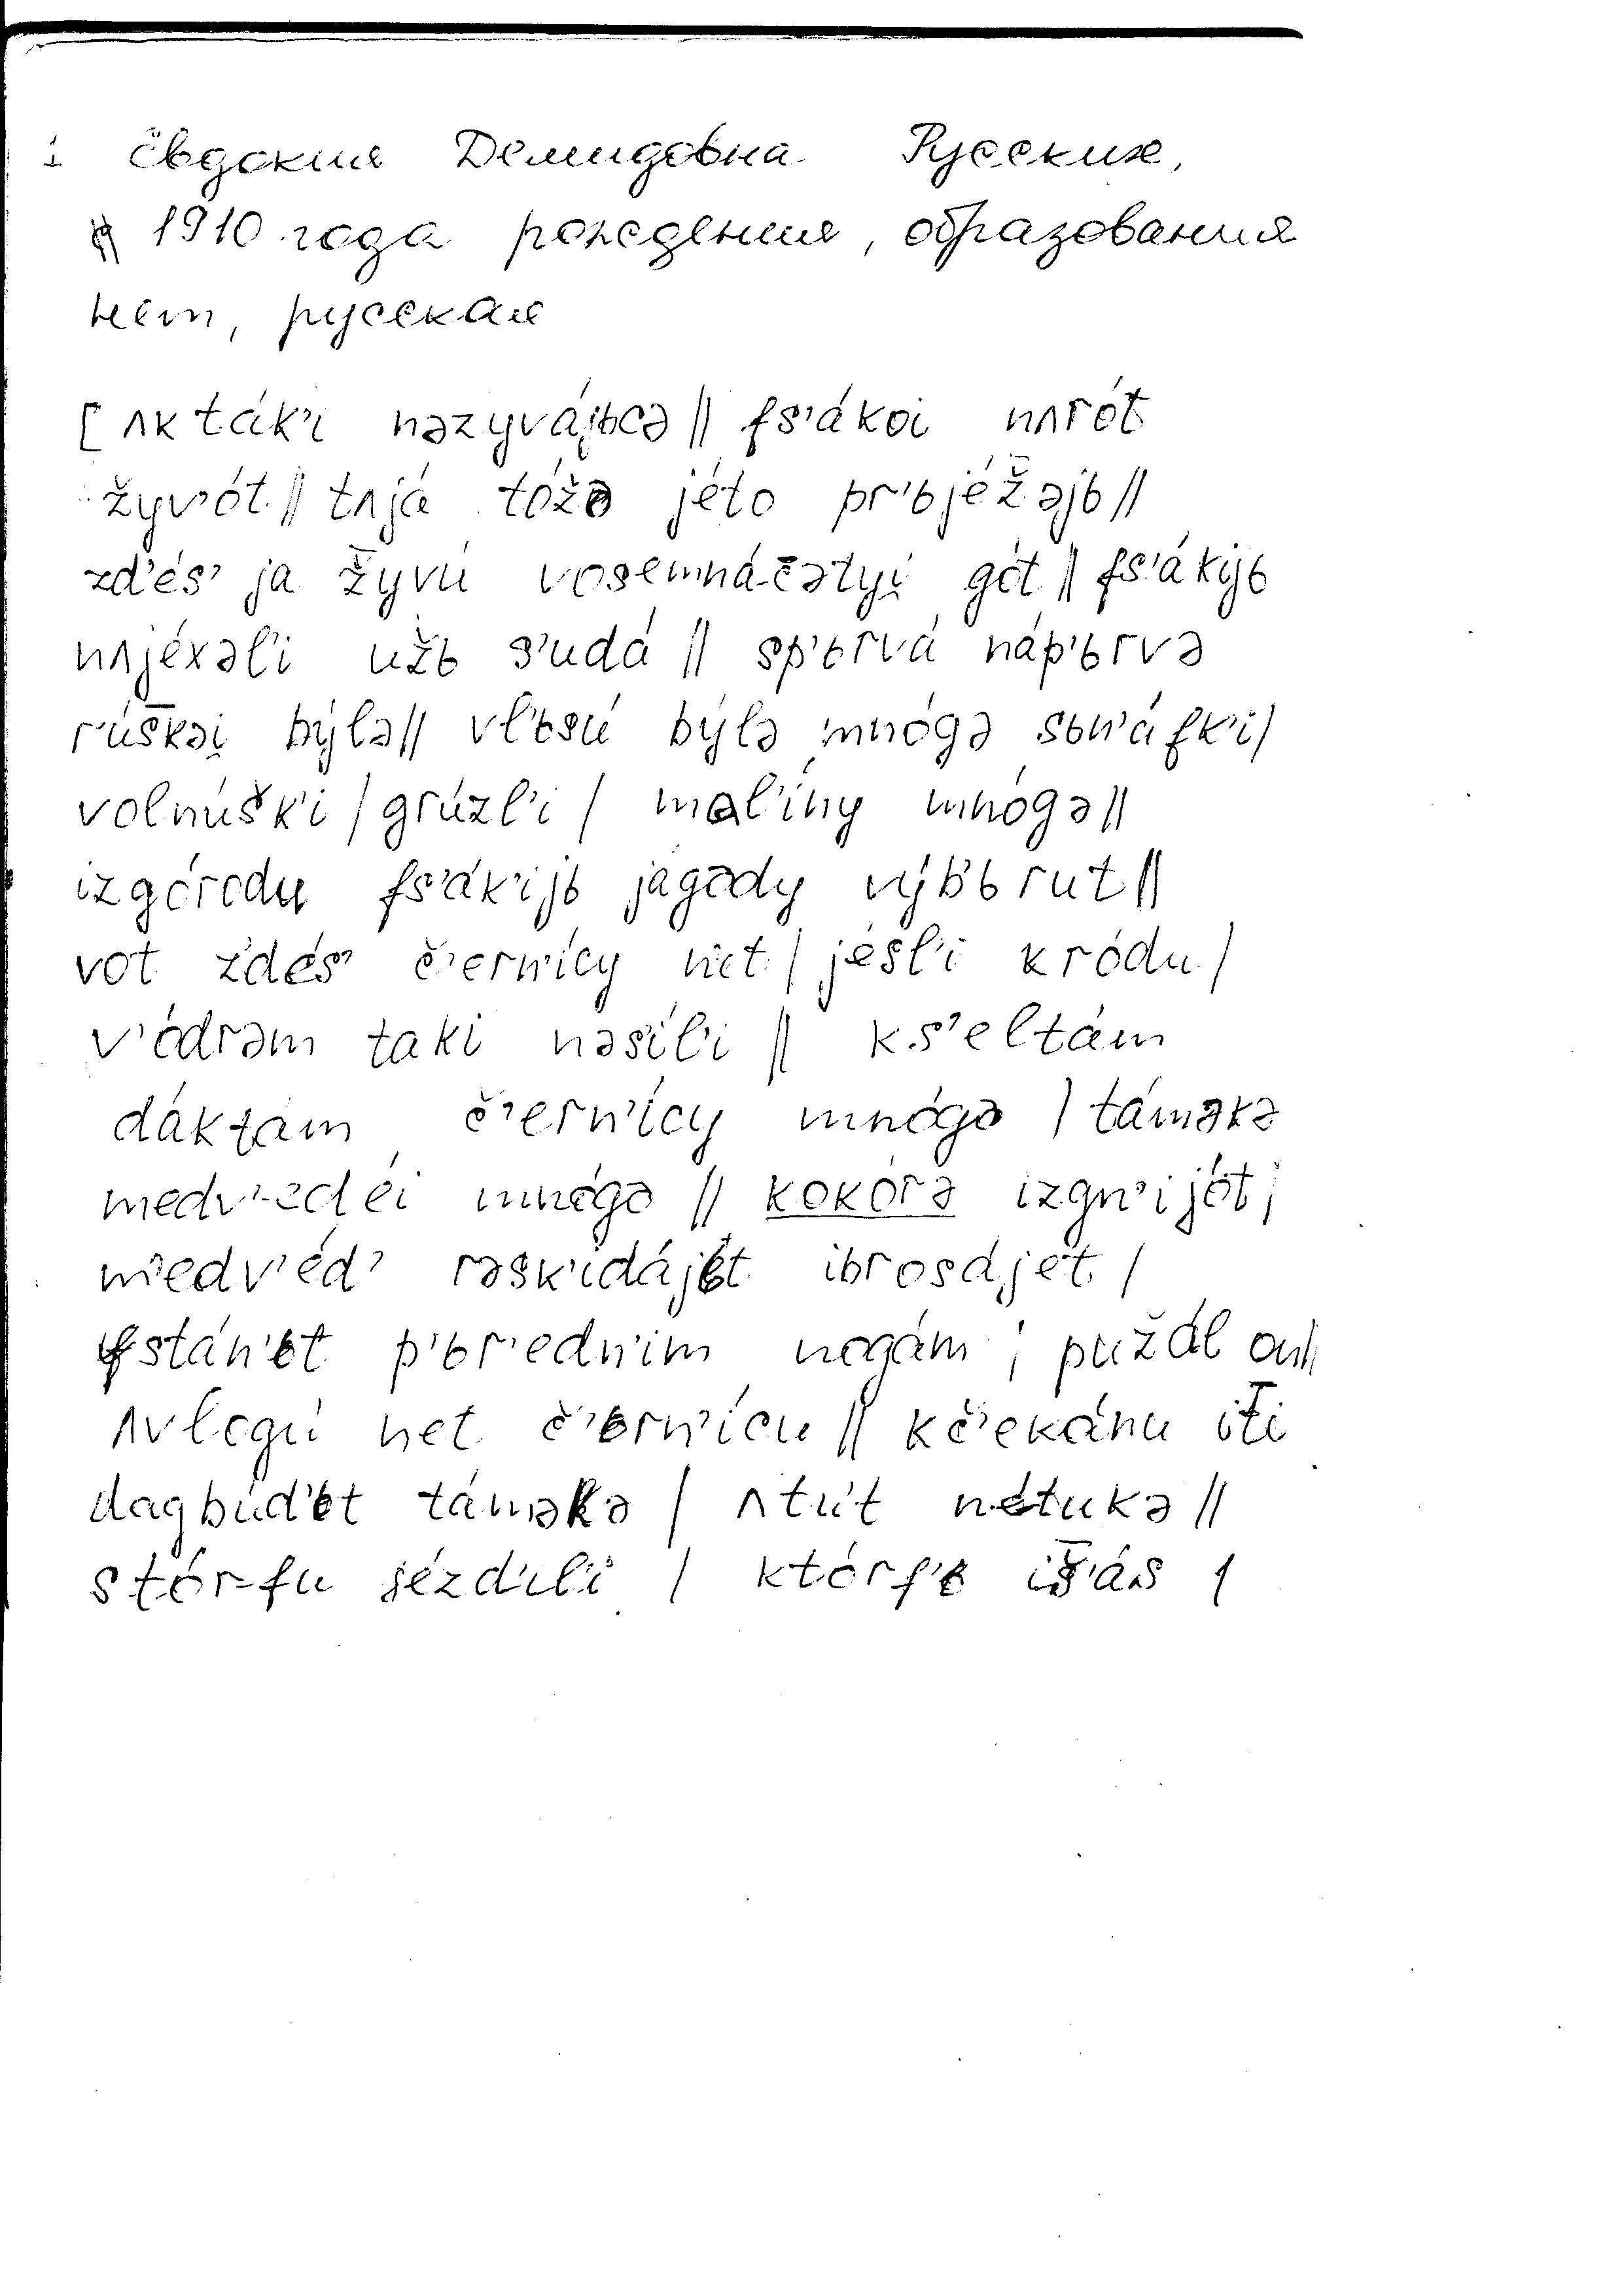 1 Евдокия Демидовна Русских,
1910 года рождения, образования
нет, русская
[ ʌk ták'i nəzyvájьcə || fs'ákoi nʌrót
žyv'ót || tʌjá tóžə jéto pr'ьjéžəjь ||
zd'és' ja žyvú vosemná-čətyi̯ gót || fs'ákijь
nʌjéxəl'i užь s'udá || sp'ьrvá náp'ьrvə
rúškəi̯ býlə || vl'ьsú býlə mnógə sьn'áfk'i |
volnúšk'i | grúzl'i | mal'íny mnógə ||
izgórodu fs'ák'ijь jágədy výb'ьrut ||
vot z'dés' č'ern'ícy n'et | jésl'i kródu |
v'ódrəm taki nəsíl'i || ks'eltám
dáktam č'ern'ícy mnógə | táməkə
medv'-edéi mnógə || kokórə izgn'ijót |
m'edv'éd' rəsk'idájьt ibrosájet |
fstán'ьt p'ьr'edn'im nogám | pužál on ||
ʌvlogú net č'ьrn'ícu || kč'ekánu it̄i
dagbúd'ьt táməkə | ʌtút nétukə ||
stór-fu jézd'il'i | którf'ь iš̄'ás |